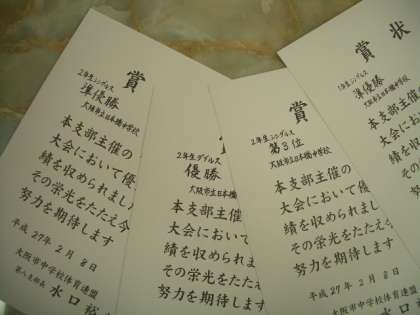 賞
2年生シングルス
準優勝
大阪市立日本橋中学校
本支部主催の
大会において優
績を収められまし
その栄光をたたえ今
努力を期待します
平成 27年 2月 8日
大阪市中学校体育連盟
水口裕
2年生ダブルス
優勝
大阪市立日本橋
本支部主催の
大会において
績を収められ
その栄光をたたえ
努力を期待します
賞
2年生シングルス
第3位
大阪市立日本橋中学校
本支部主催の
大会において優
績を収められまし
その栄光をたたえ
努力を期待します
平成 27年 2月 8日
大阪市中学校体育連盟
水口
賞状
1年生シングルス
準優勝
大阪市立日本橋中学校
本支部主催
大会において
績を収められ
その栄光をた
努力を期待